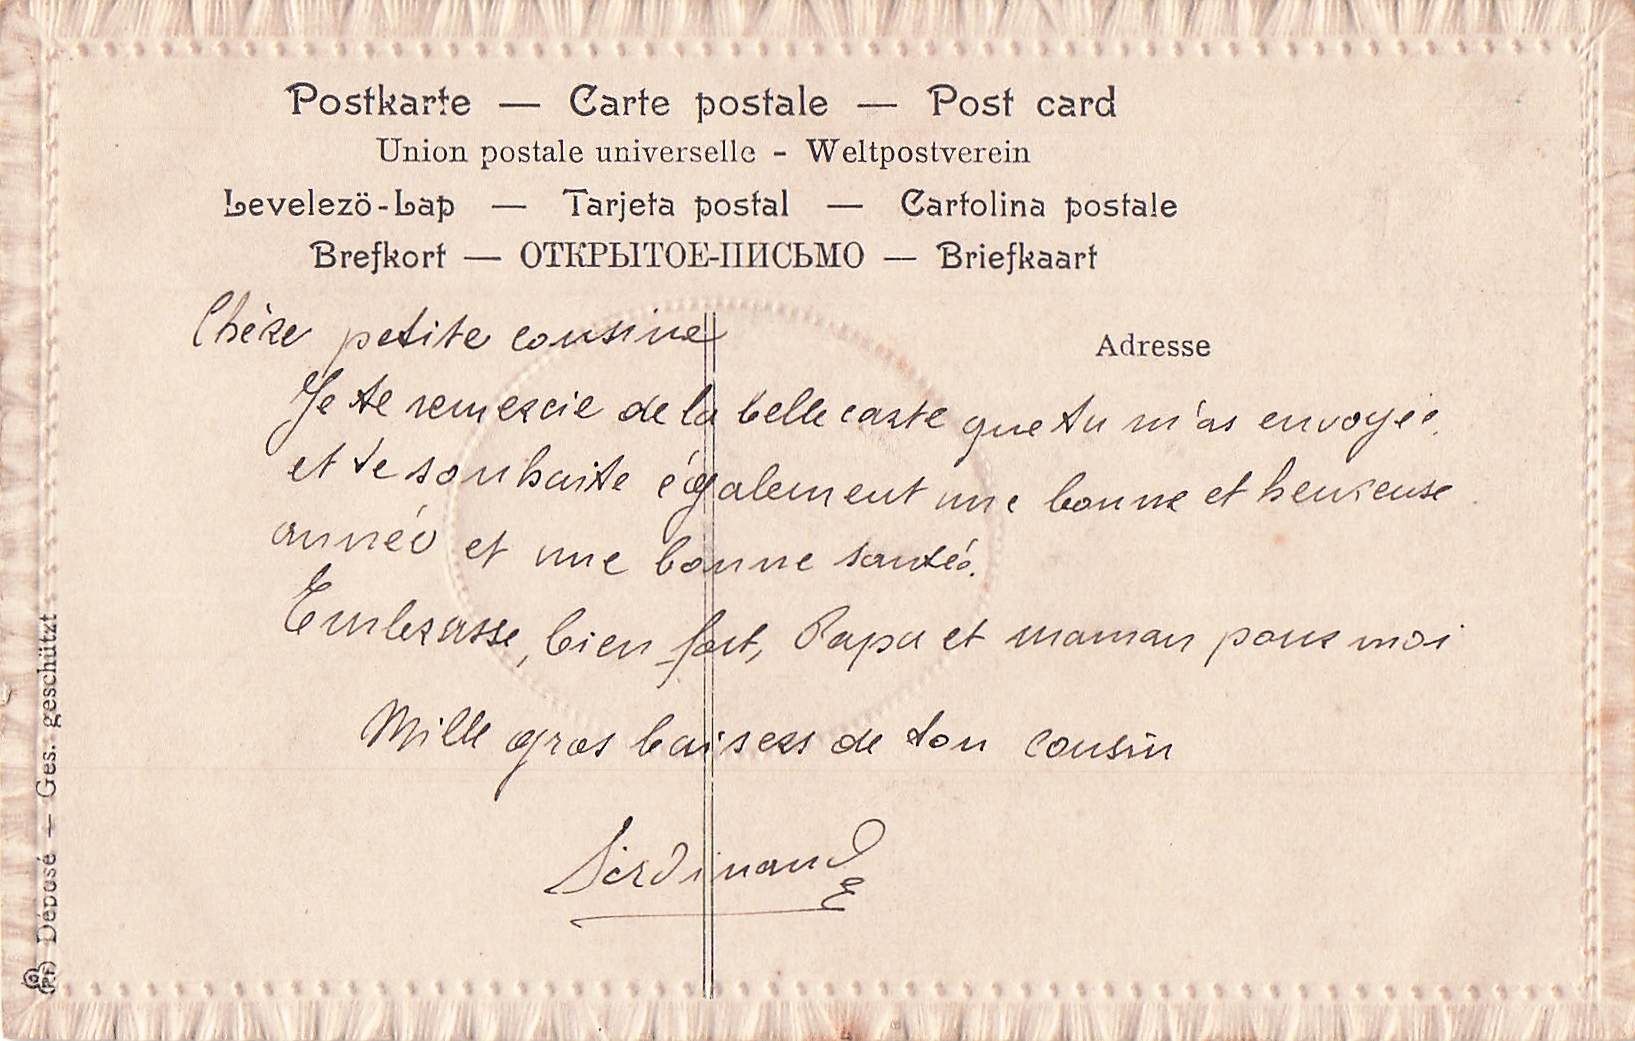 Postkarte — Carte postale — Post card
Union postale universelle - Weltpostverein
Levelezö-Lap — Tarjeta postal — Cartolina postale
Brefkort — ОТКРЫТОЕ-ПИСЬМО — Briefkaart
Adresse
Chère petite cousine
Je te remercie de la belle carte que tu m'as envoyée
et te souhaite également une bonne et heureuse
année et une bonne santée.
Embrasse, bien fort, Papa et maman pour moi
Mille gros baisers de ton cousin
Ferdinand
Déposé — Ges. geschützt